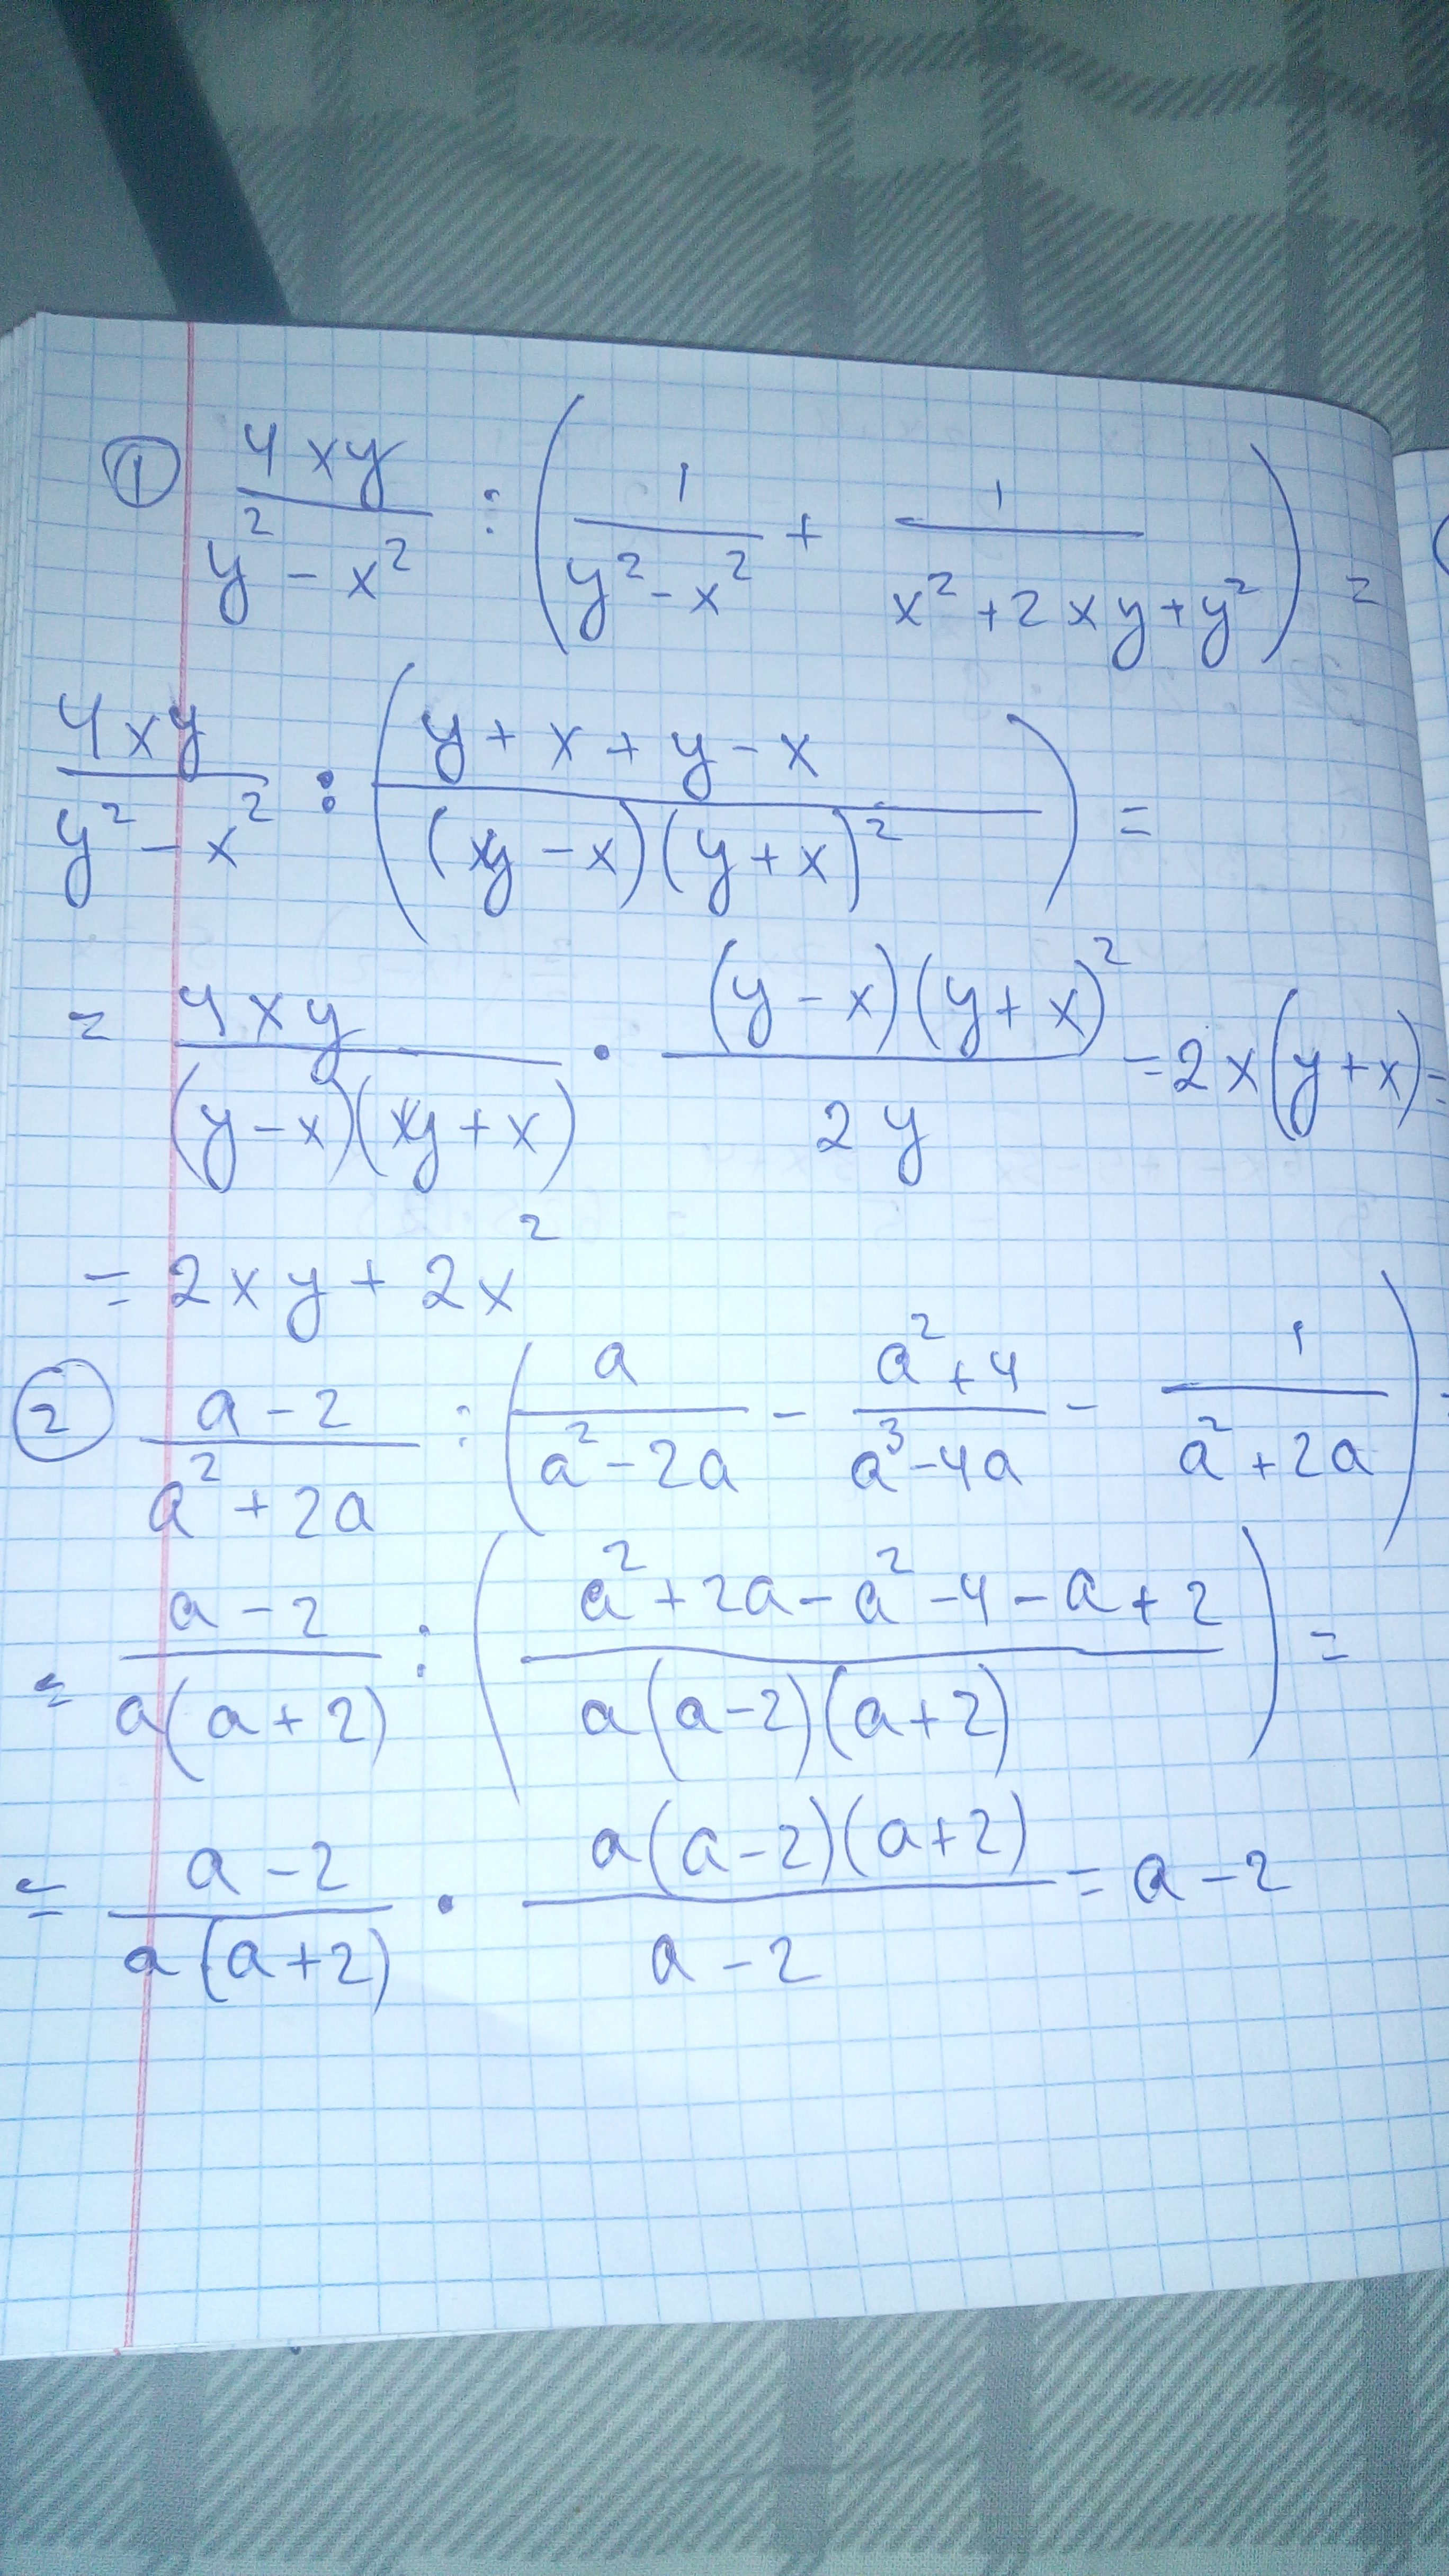 ① 4xy/(y² - x²) : (1/(y² - x²) + 1/(x² + 2xy + y²)) =
4xy/(y² - x²) : ((y + x + y - x)/((y - x)(y + x)²)) =
= 4xy/((y - x)(y + x)) · ((y - x)(y + x)²)/(2y) = 2x(y + x) =
= 2xy + 2x²
② (a - 2)/(a² + 2a) : (a/(a² - 2a) - (a² + 4)/(a³ - 4a) - 1/(a² + 2a)) =
= (a - 2)/(a(a + 2)) : ((a² + 2a - a² - 4 - a + 2)/(a(a - 2)(a + 2))) =
= (a - 2)/(a(a + 2)) · (a(a - 2)(a + 2))/(a - 2) = a - 2